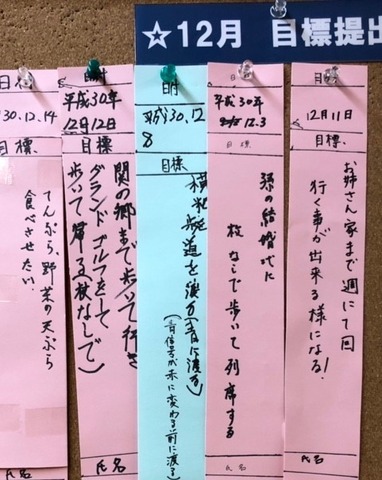 ☆12月 目標提出
12月11日
目標
お姉さん家まで週にて回
行く事が出来る様になる!
氏名
平成30年
12.3
目標
孫の結婚式に
杖なしで歩いて列席する
氏名
日付
平成30.12
8
目標
歩道を渡方(青に渡る)
(青信号が赤に変わる前に渡る)
平成30年
12月12日
目標
関の郷まで歩いて行き
グランドゴルフをして
歩いて帰る(杖なしで)
氏名
30.12.14
目標
てんぷら、野菜の天ぷら
食べさせたい
氏名